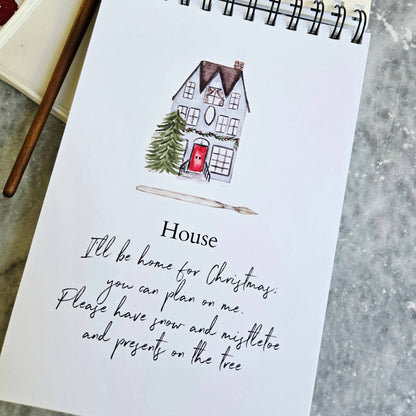 House
I'll be home for Christmas;
you can plan on me.
Please have snow and mistletoe
and presents on the tree